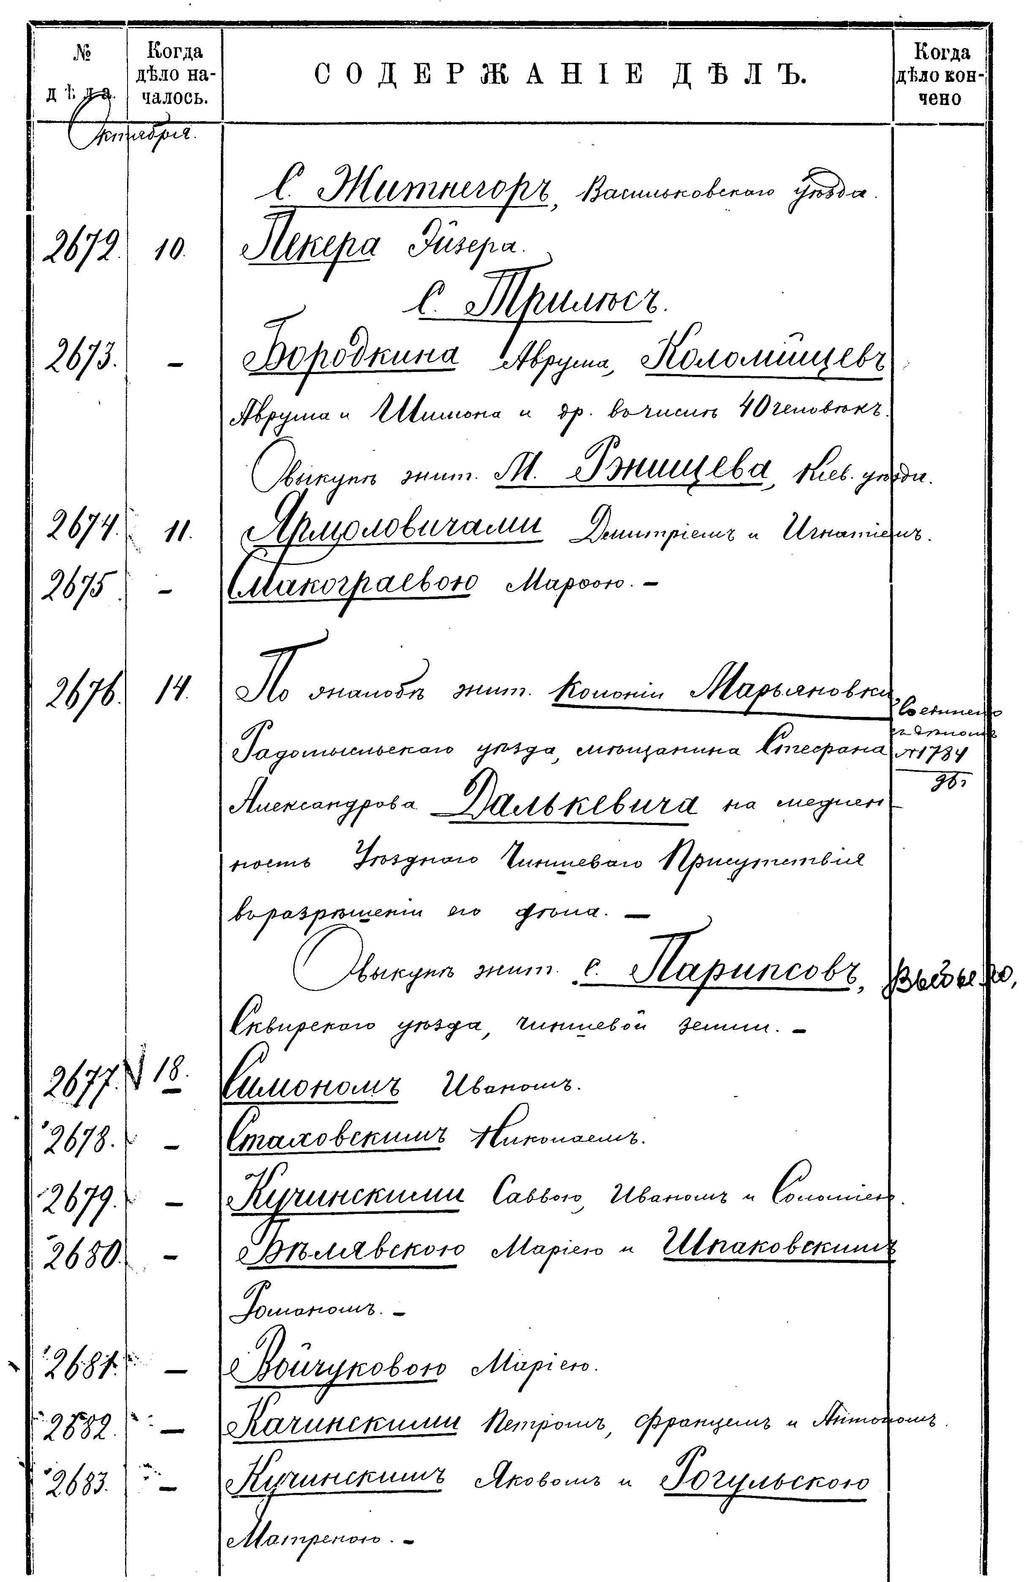 № дѣла.
Когда дѣло на-чалось.
СОДЕРЖАНІЕ ДѢЛЪ.
Когда дѣло кон-чено
Октября.
С. Житнегоръ, Васильковскаго уѣзда.
2672. 10. Пекера Эйзера.
С. Трилѣсъ.
2673. — Бородкина Аврума, Коломійцевъ
Аврума и Шимона и др. въ числѣ 40 человѣкъ.
О выкупѣ жит. М. Ржищева, Кіев. уѣзда.
2674. 11. Ярмоловичами Дмитріемъ и Игнатіемъ.
2675 — Макограевою Марѳою. —
2676. 14. По жалобѣ жит. колоніи Марьяновки
Радомысльскаго уѣзда, мѣщанина Стефана
Александрова Далькевича на медлен-
ность Уѣзднаго Чиншеваго Присутствія
въ разрѣшеніи его дѣла. —
№ 1784
О выкупѣ жит. с. Парипсовъ,
Сквирскаго уѣзда, чиншевой земли. —
2677. V 18. Симономъ Иваномъ.
2678. — Стаховскимъ Николаемъ.
2679. — Кучинскими Саввою, Иваномъ и Соломіею.
2680. — Бѣлявскою Маріею и Шпаковскимъ
Романомъ. —
2681. — Войчуковою Маріею.
2682. — Качинскими Петромъ, Францемъ и Антономъ.
2683. — Кучинскимъ Яковомъ и Рогульскою
Матреною. —